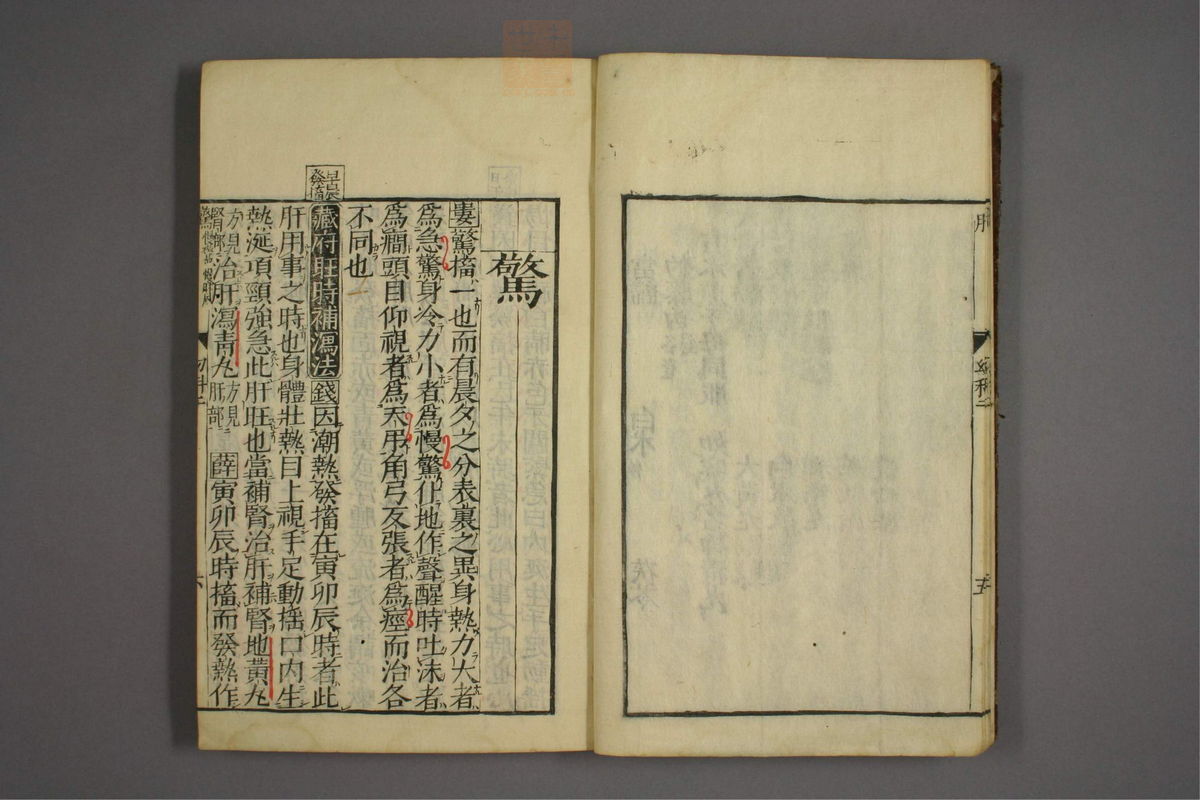 驚
婁驚搐一也而有晨夕之分表裏之異身熱力大者
為急驚身冷力小者為慢驚仆地作聲醒時吐沫者
為癎頭目仰視者為天弔角弓反張者為痙而治各
不同也
早晨發搐
臟府旺時補瀉法 錢因潮熱發搐在寅卯辰時者此
肝用事之時也身體壯熱目上視手足動搖口內生
熱涎項頸強急此肝旺也當補腎治肝補腎地黃丸
方見腎部治肝瀉青丸方見肝部 薛寅卯辰時搐而發熱作
幼科二
六
肝
幼科二
五